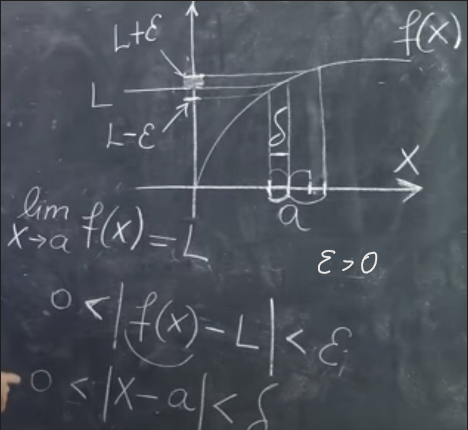 L+ε
f(x)
L
L-ε
δ
X
a
lim f(x) = L
x→a
ε > 0
0 < |f(x) - L| < ε
0 < |x - a| < δ